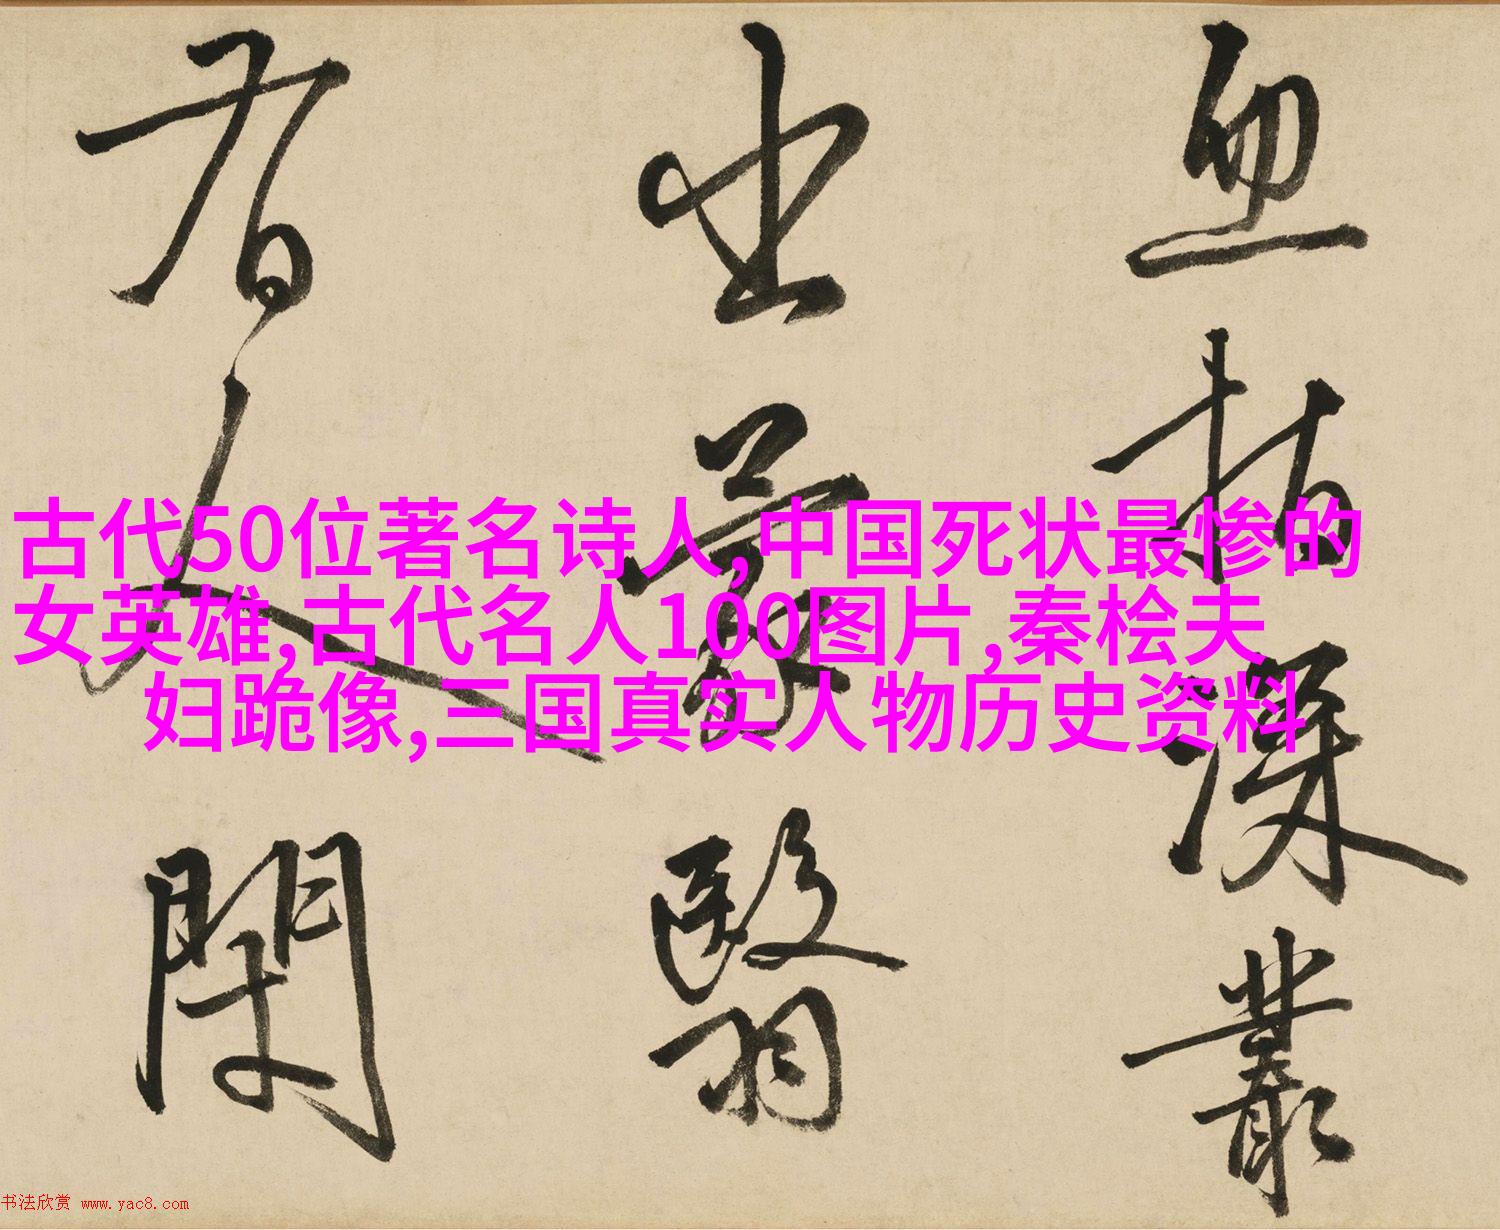 血指深叢
出蒙翳
有人
古代50位著名诗人,中国死状最惨的
女英雄,古代名人100图片,秦桧夫
妇跪像,三国真实人物历史资料
书法欣赏 www.yac8.com